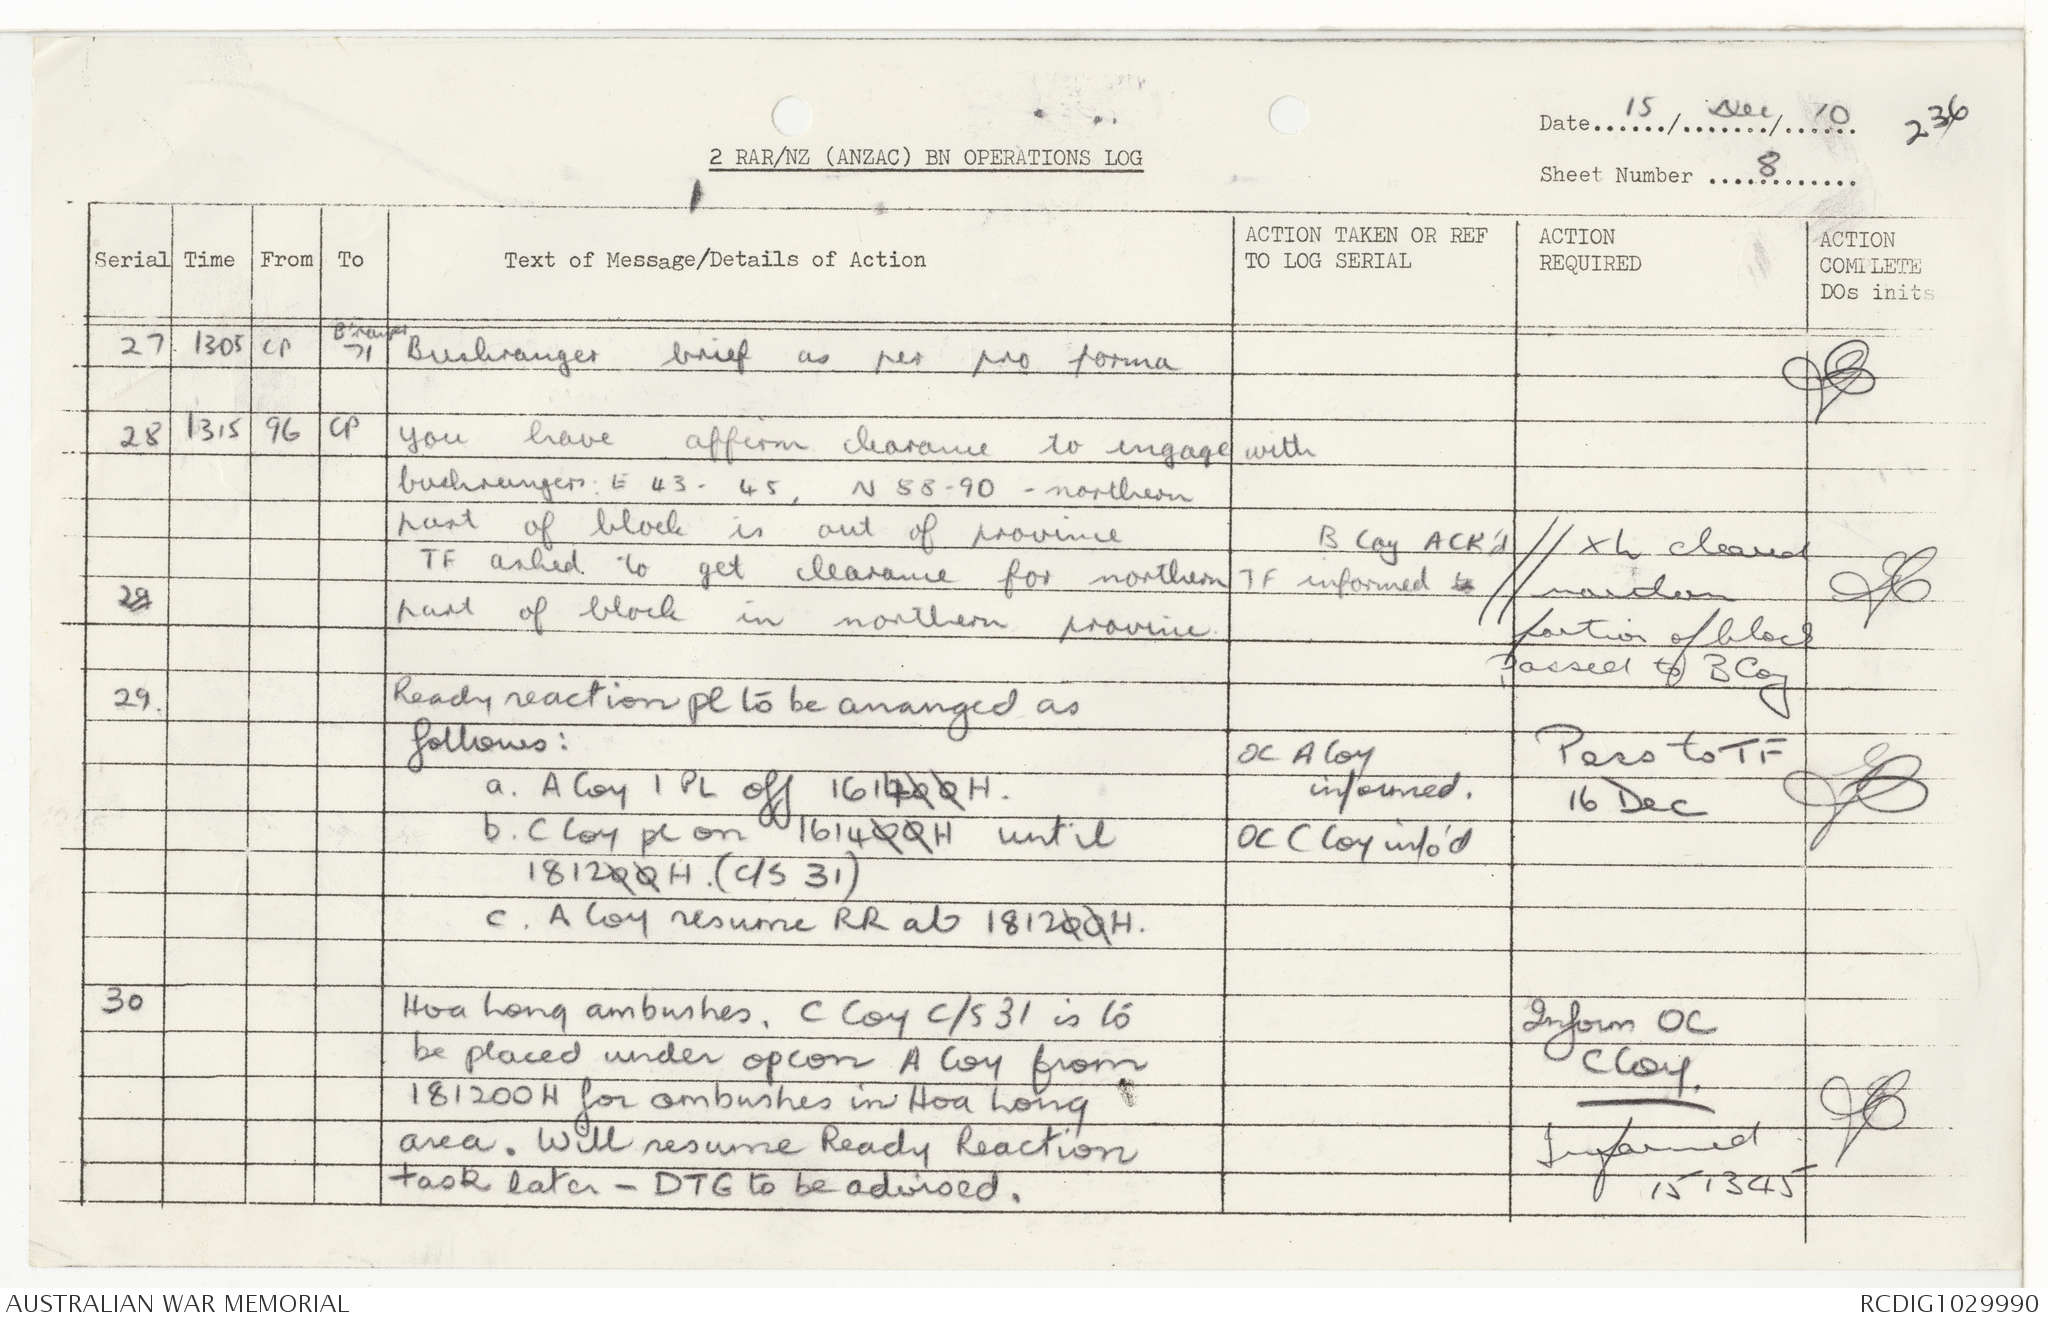 Date 15 / Dec / 70
236
2 RAR/NZ (ANZAC) BN OPERATIONS LOG
Sheet Number 8
Serial Time From To Text of Message/Details of Action ACTION TAKEN OR REF TO LOG SERIAL ACTION REQUIRED ACTION COMPLETE DOs inits
27 1305 CP B'ranger 71 Bushranger brief as per pro forma
28 1315 96 CP You have affirm clearance to engage with
bushrangers E 43 - 45, N 88-90 - northern
part of block is out of province B Coy ACK'd // cleared
TF asked to get clearance for northern TF informed // northern
29 part of block in northern province.
portion of block
passed to B Coy
29. Ready reaction pl to be arranged as
follows: OC A Coy Pass to TF
a. A Coy 1 PL off 161400H. informed. 16 Dec
b. C Coy pl on 161400H until OC C Coy info'd
181200H. (C/S 31)
c. A Coy resume RR at 181200H.
30 Hoa Long ambushes. C Coy C/S 31 is to Inform OC
be placed under opcon A Coy from C Coy.
181200H for ambushes in Hoa Long
area. Will resume Ready Reaction Informed
task later - DTG to be advised. 151345
AUSTRALIAN WAR MEMORIAL RCDIG1029990